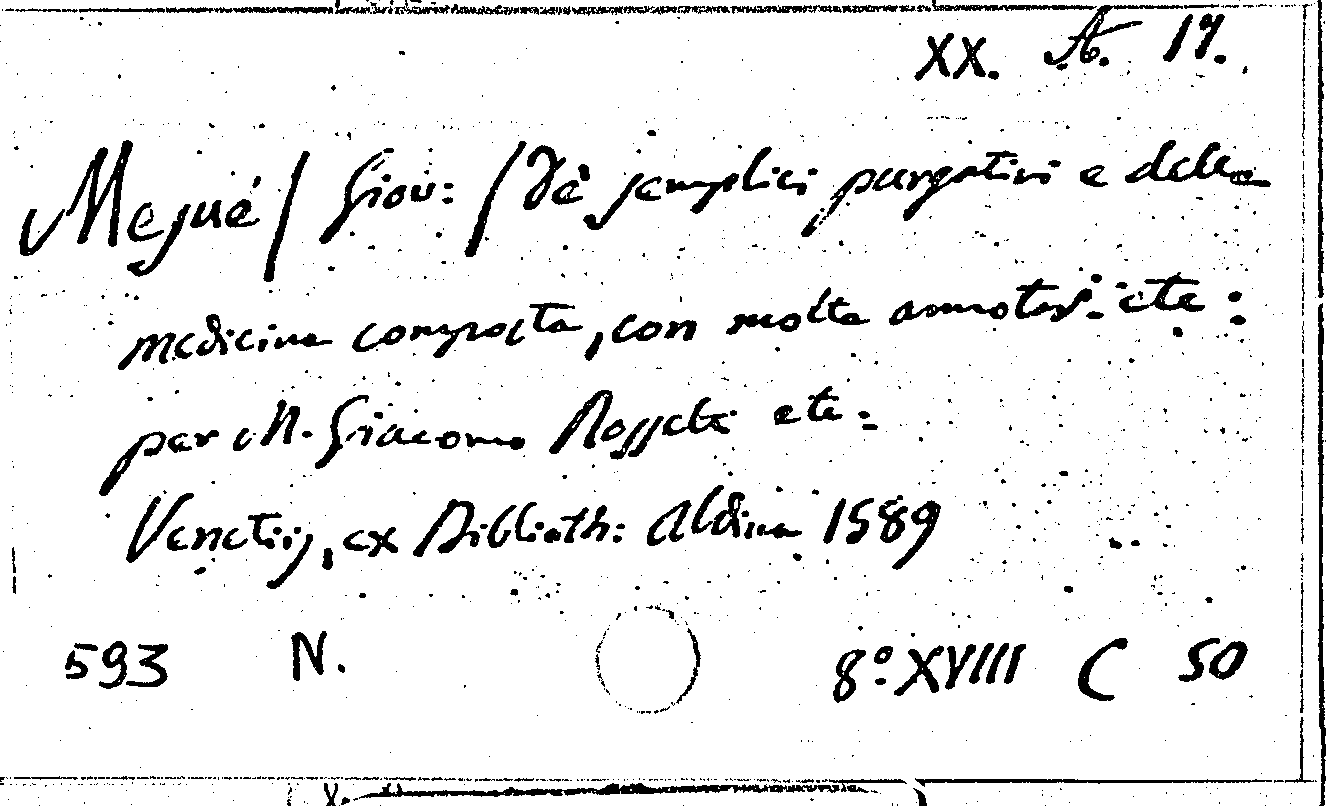 XX. A. 17.
Mesué / Giov: / De' semplici purgativi e delle
medicine composta, con molte annotaz. etc:
per M. Giacomo Rossetti etc.
Venetiis, ex Biblioth: Aldina 1589
593 N. 8° XVIII C 50